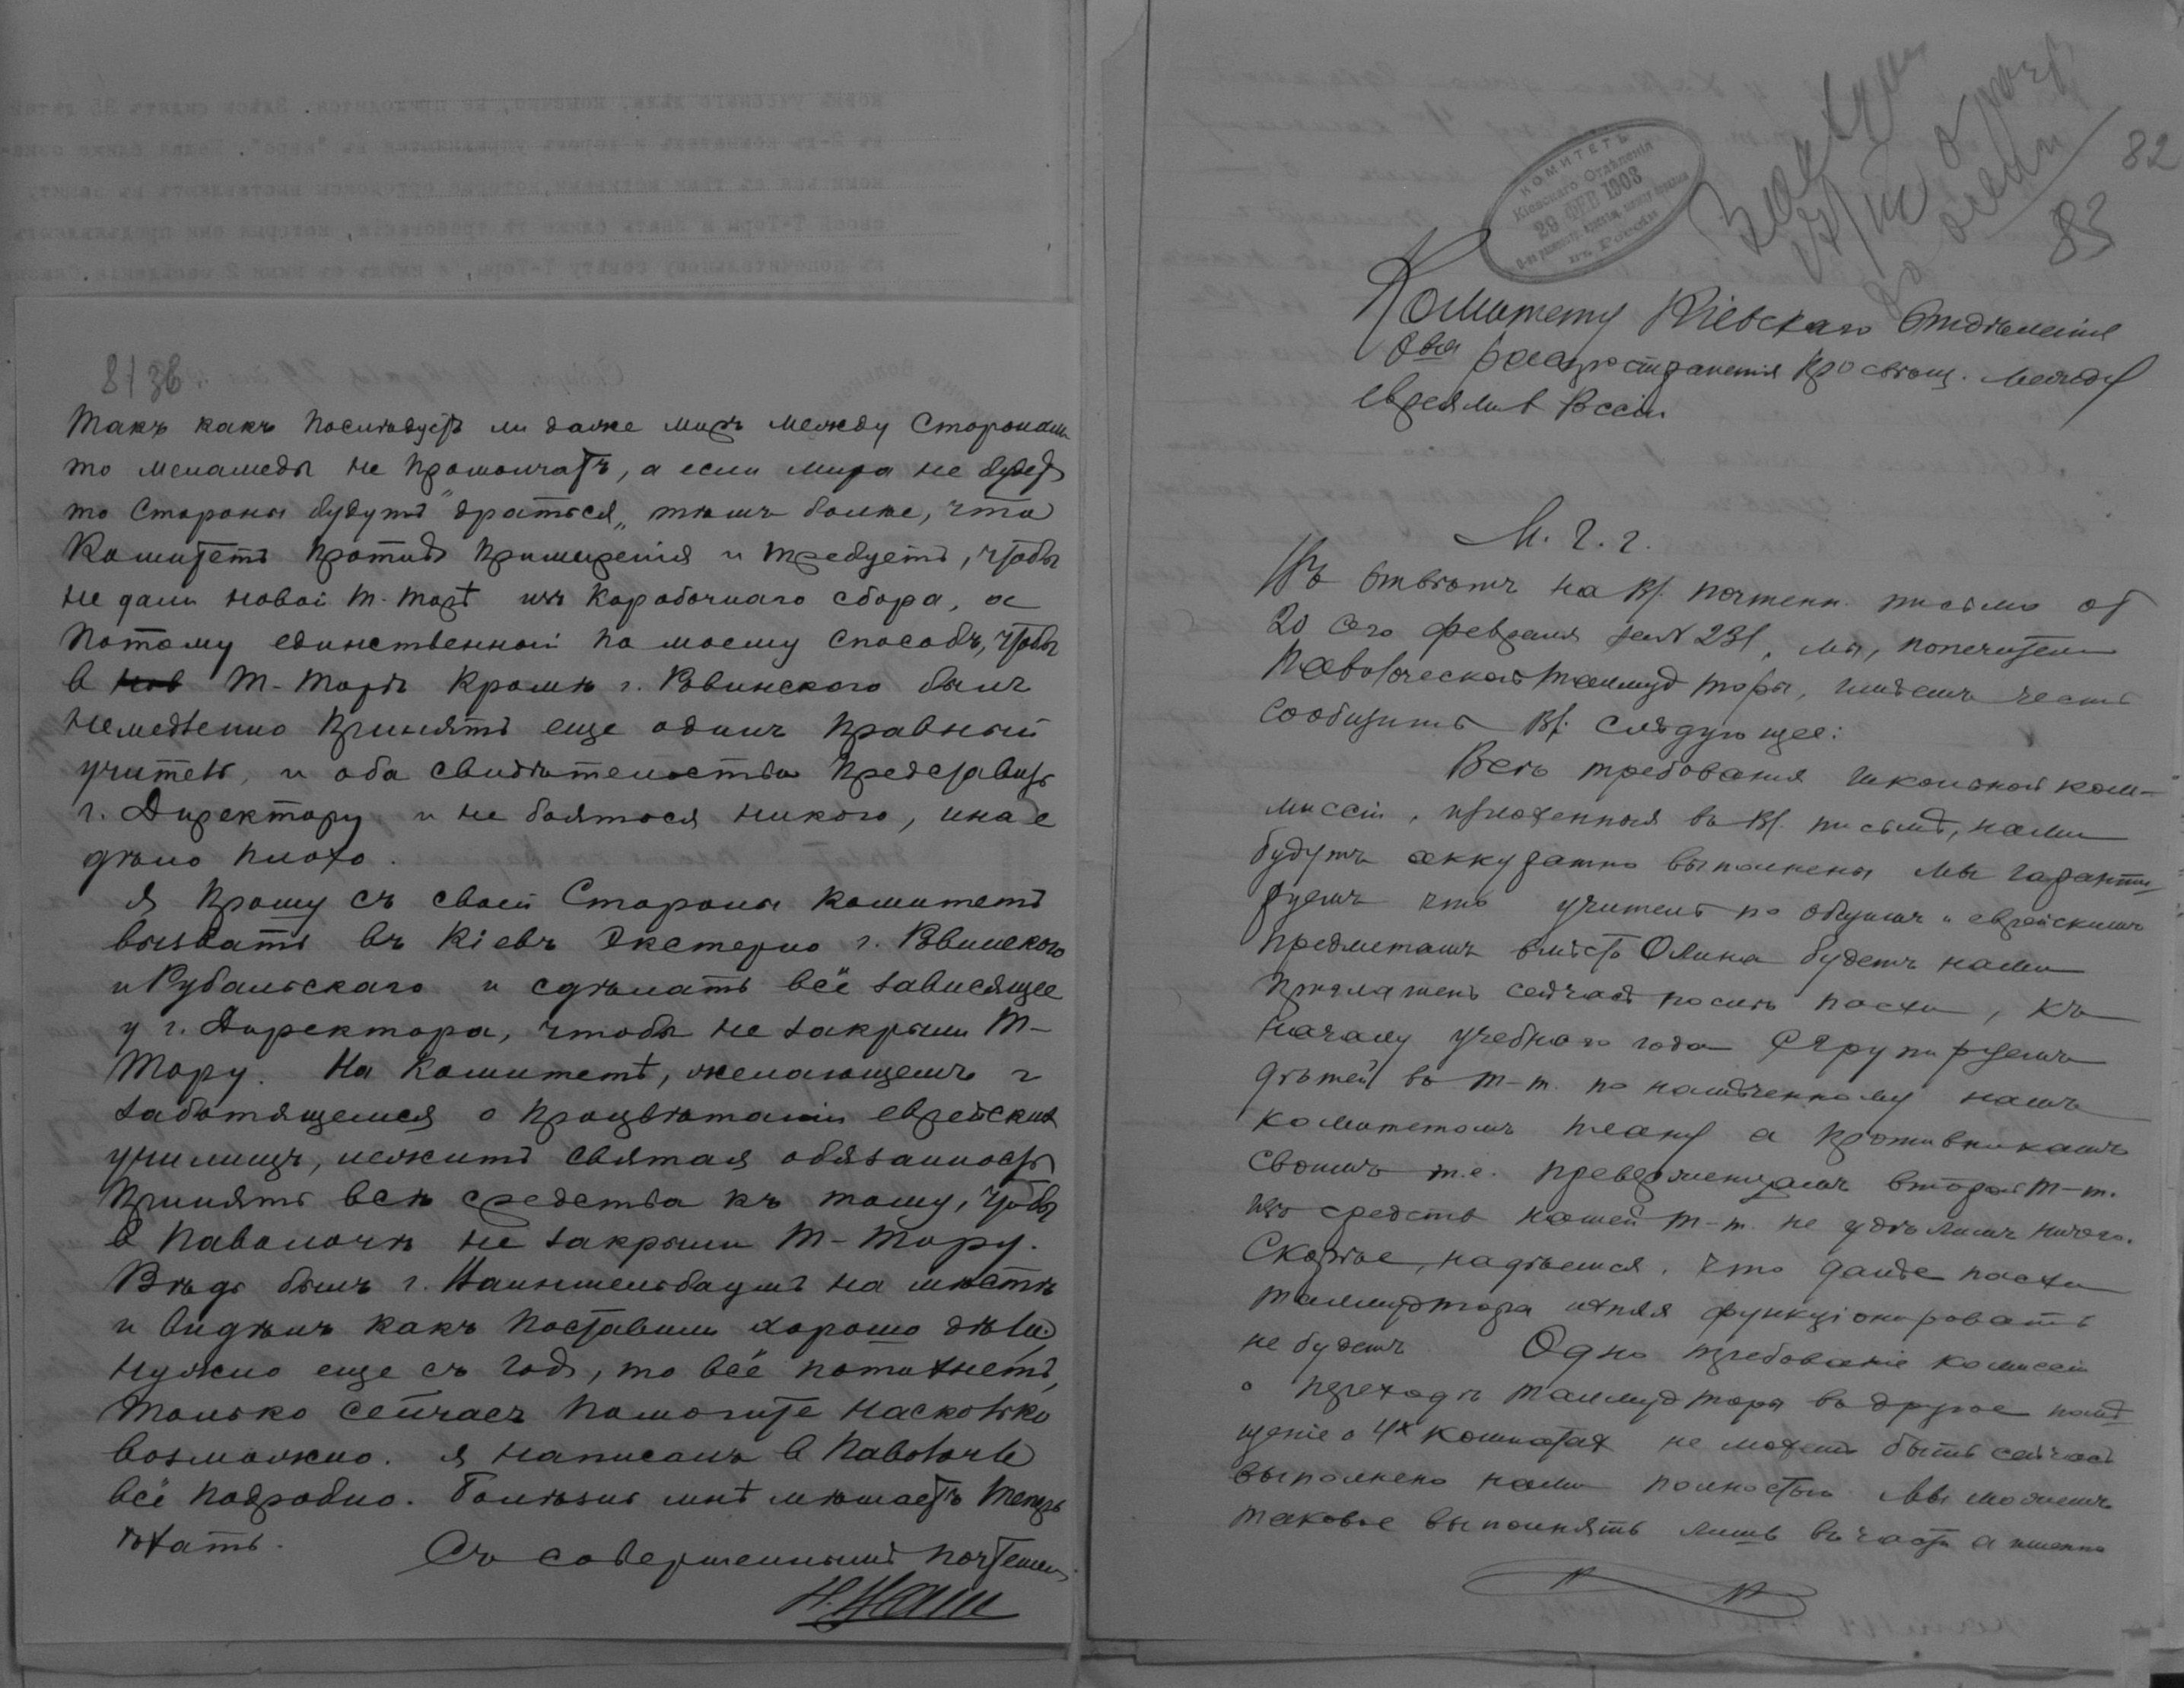 81 36
Такъ какъ послѣдуетъ ли даже миръ между Сторонами
то меламеды не промолчатъ, а если мира не будетъ
то Стороны будутъ "драться", тѣмъ болѣе, что
Комитетъ противъ примиренія и требуетъ, чтобы
не дали новой Т. Торѣ изъ Коробочнаго сбора, а
потому единственный по моему способъ, чтобы
в Т-Торѣ кромѣ г. Ровинского былъ
немедленно принятъ еще одинъ правный
учитель, и оба свидѣтельства представить
г. Директору и не боятося никого, иначе
дѣло плохо.
Я прошу съ своей Стороны Комитетъ
вызвать въ Кіевъ Экстерно г. Рвинского
и Рубальскаго и сдѣлать всё зависящее
у г. Директора, чтобы не закрыли Т-
Тору. На Комитетѣ, желающемъ и
заботящемся о процвѣтаніи еврейских
училищъ, лежитъ святая обязанность
принять всѣ средства къ тому, чтобы
в Паволочи не закрыли Т-Тору.
Вѣдь былъ г. на мѣстѣ
и видѣлъ какъ поставили хорошо дѣло.
Нужно еще съ годъ, то всё
только сейчасъ помогите насколько
возможно. Я написалъ в Паволочь
всё подробно. Болѣзнь мнѣ мѣшаетъ теперь
ѣхать.
Съ совершеннымъ почтеніем
82
83
КОМИТЕТЪ
Кіевскаго Отдѣленія
29 ФЕВ 1903
въ Россіи
Комитету Кіевскаго Отдѣленія
О-ва распространенія Просвѣщ. между
евреями в Россіи
М. Г. г.
Въ отвѣтъ на В/. почтенн. письмо от
20 сего февраля за N 231, мы, попечители
Паволоческой Талмуд торы, имѣемъ честь
сообщить В/. слѣдующее:
Всѣ требования школьной ком-
миссіи, изложенныя въ В/. письмѣ, нами
будутъ аккуратно выполнены Мы гаранти-
руемъ что учитель по общимъ и еврейскимъ
предметамъ вмѣсто Олика будетъ нами
приглашенъ сейчасъ послѣ пасхи, къ
началу учебного года сгрупируемъ
дѣтей въ т-т. по намѣченному намъ
комитетомъ плану а противникамъ
своимъ т.е. приверженцамъ второй т-т.
изъ средствъ нашей т-т. не удѣлимъ ничего.
Скорѣе, надѣемся, что далѣе пасхи
талмудтора ихняя функціонировать
не будетъ Одно требованіе комиссіи
о переходѣ талмуд торы въ другое помѣ
щеніе о 4х комнатах не можетъ быть сейчасъ
выполнено нами полностью Мы можемъ
таковое выполнять лишь въ части а именно